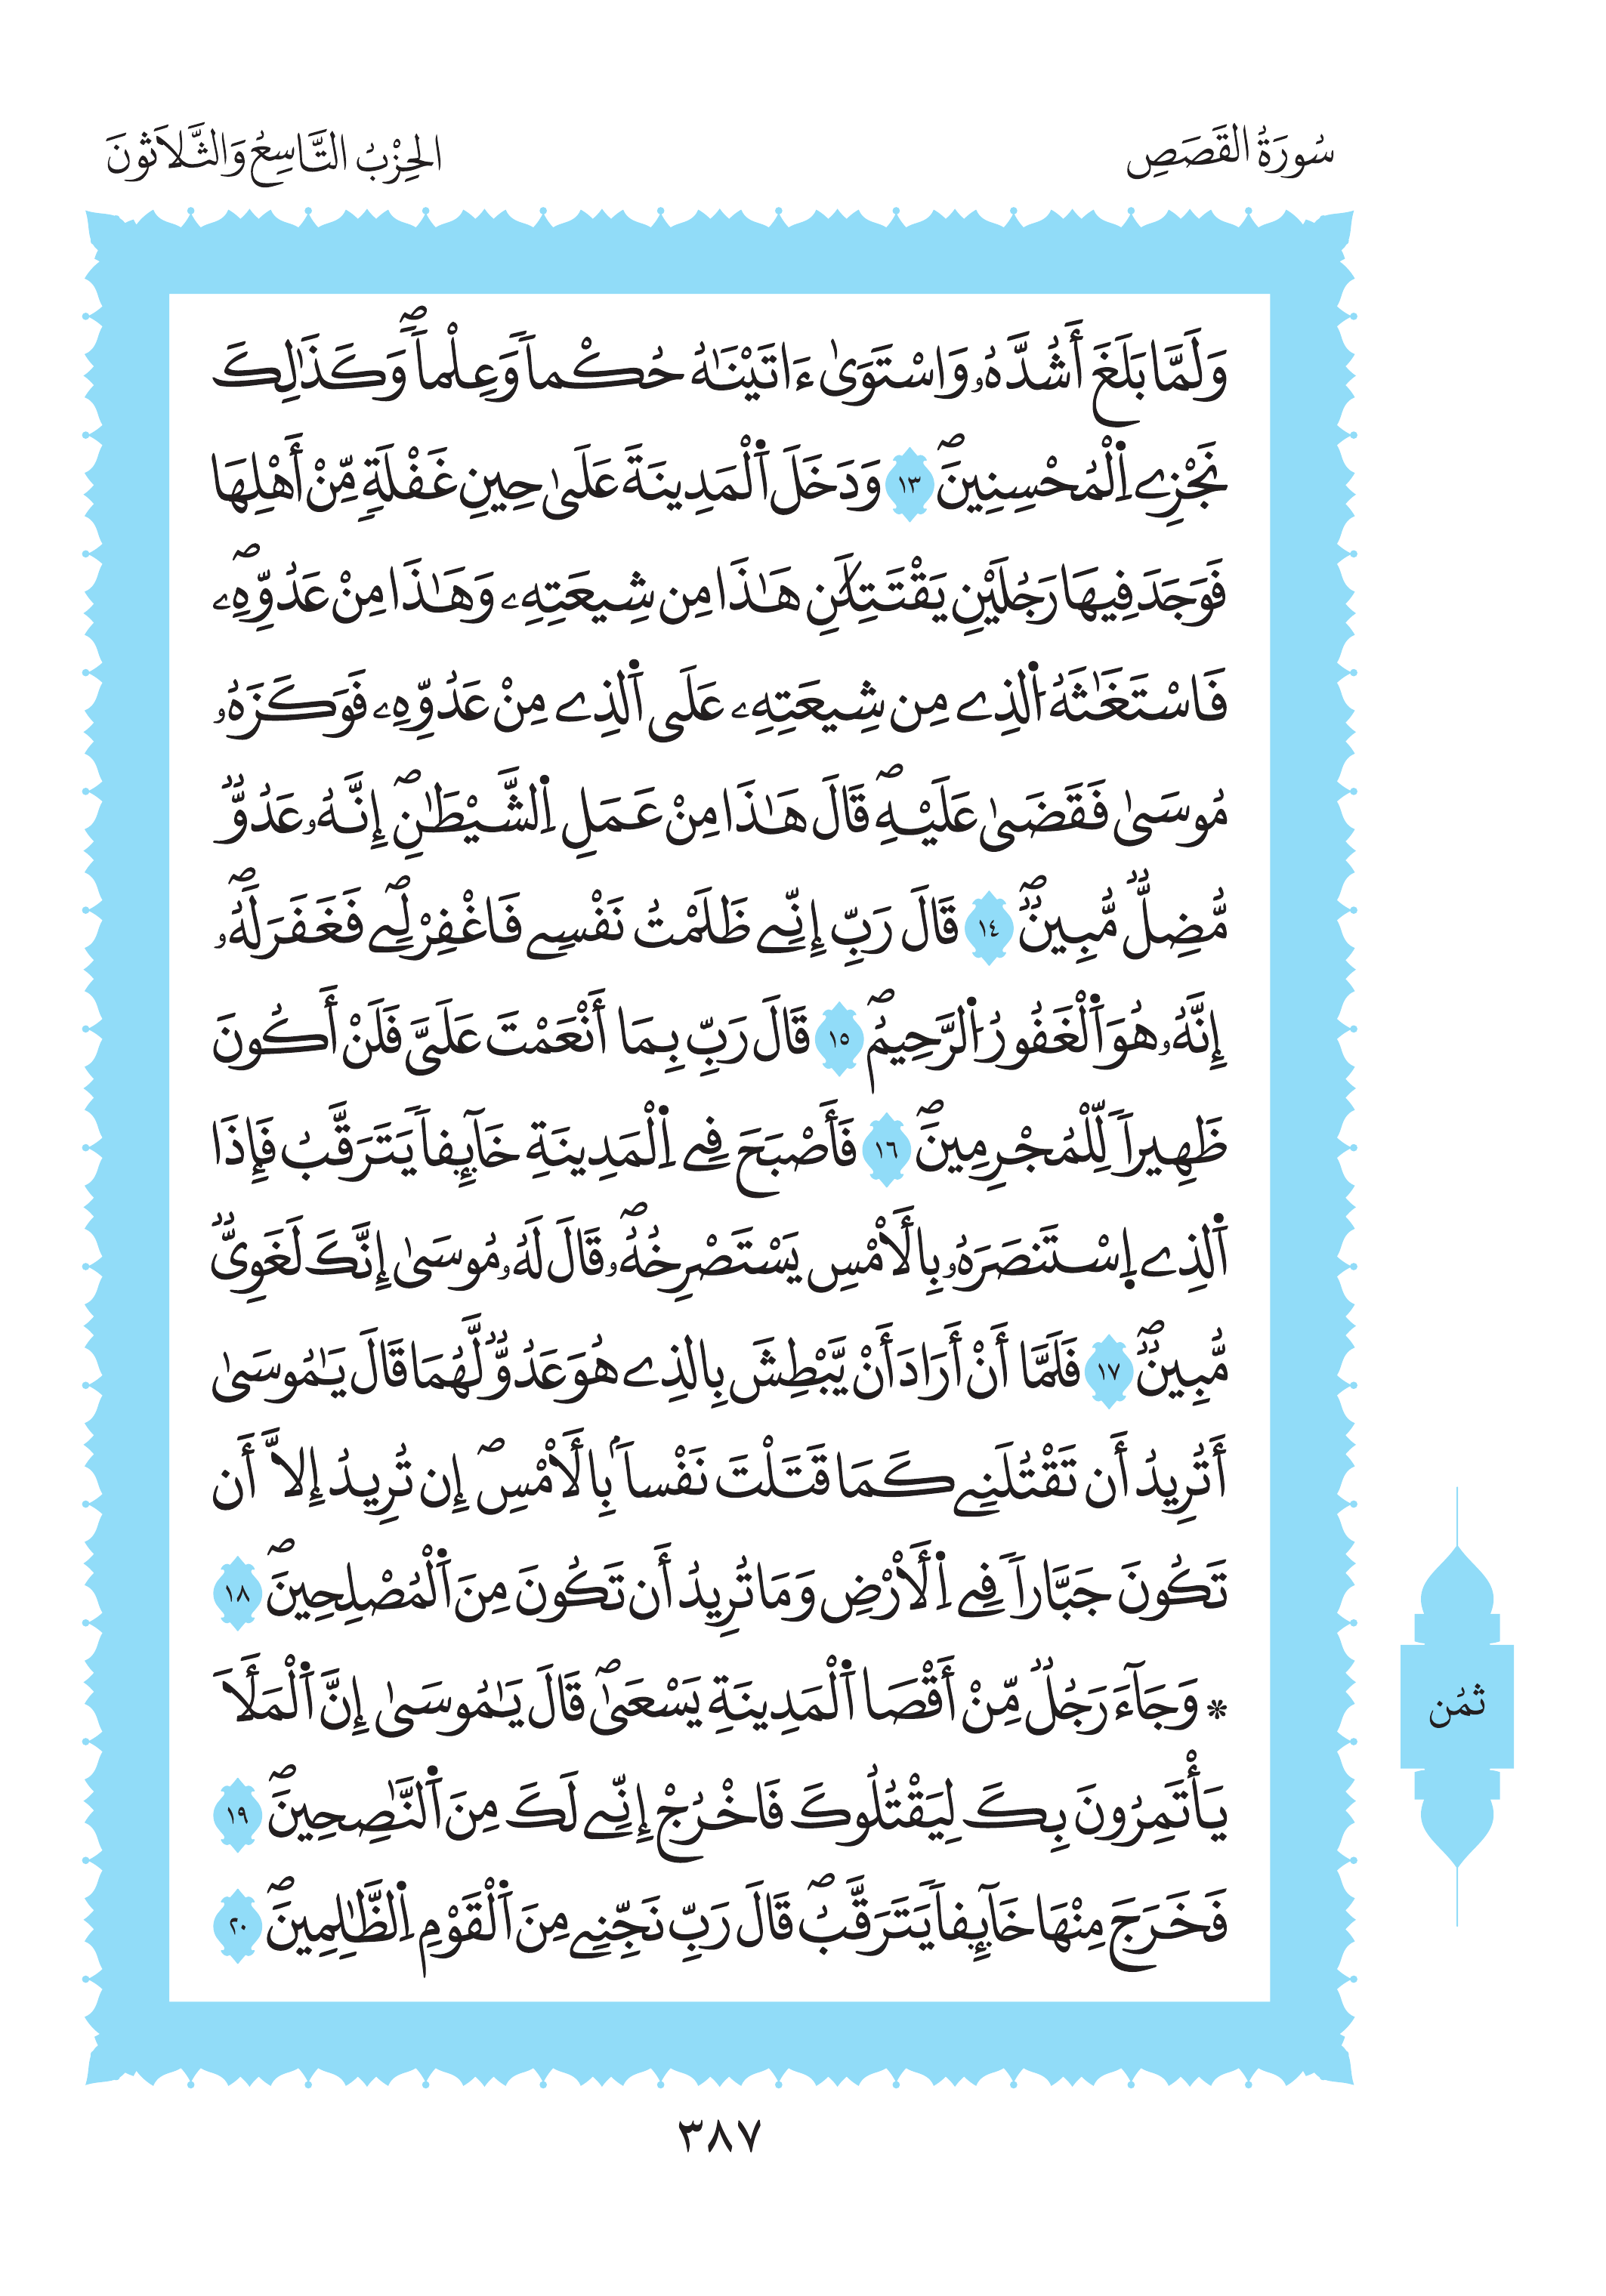 سُورَةُ القَصَصِ
الحِزْبُ التَّاسِعُ وَالثَّلَاثُونَ
وَلَمَّا بَلَغَ أَشُدَّهُۥ وَاسْتَوَىٰ ءَاتَيْنَٰهُ حُكْماٗ وَعِلْماٗۖ وَكَذَٰلِكَ
نَجْزِے اِ۬لْمُحْسِنِينَۖ ١٣ وَدَخَلَ اَ۬لْمَدِينَةَ عَلَىٰ حِينِ غَفْلَةٖ مِّنْ أَهْلِهَا
فَوَجَدَ فِيهَا رَجُلَيْنِ يَقْتَتِلَٰنِ هَٰذَا مِن شِيعَتِهِۦ وَهَٰذَا مِنْ عَدُوِّهِۦۖ
فَاسْتَغَٰثَهُ اُ۬لذِے مِن شِيعَتِهِۦ عَلَى اَ۬لذِے مِنْ عَدُوِّهِۦ فَوَكَزَهُۥ
مُوسَىٰ فَقَضَىٰ عَلَيْهِۖ قَالَ هَٰذَا مِنْ عَمَلِ اِ۬لشَّيْطَٰنِۖ إِنَّهُۥ عَدُوّٞ
مُّضِلّٞ مُّبِينٞۖ ١٤ قَالَ رَبِّ إِنِّے ظَلَمْتُ نَفْسِے فَاغْفِرْ لِےۖ فَغَفَرَ لَهُۥۖ
إِنَّهُۥ هُوَ اَ۬لْغَفُورُ اُ۬لرَّحِيمُۖ ١٥ قَالَ رَبِّ بِمَا أَنْعَمْتَ عَلَىَّ فَلَنْ أَكُونَ
ظَهِيراٗ لِّلْمُجْرِمِينَۖ ١٦ فَأَصْبَحَ فِے اِ۬لْمَدِينَةِ خَآئِفاٗ يَتَرَقَّبُ فَإِذَا
اَ۬لذِے اِ۪سْتَنصَرَهُۥ بِالَامْسِ يَسْتَصْرِخُهُۥۖ قَالَ لَهُۥ مُوسَىٰ إِنَّكَ لَغَوِىّٞ
مُّبِينٞۖ ١٧ فَلَمَّا أَنْ أَرَادَ أَنْ يَّبْطِشَ بِالذِے هُوَ عَدُوّٞ لَّهُمَا قَالَ يَٰمُوسَىٰ
أَتُرِيدُ أَن تَقْتُلَنِے كَمَا قَتَلْتَ نَفْساَۢ بِالَامْسِۖ إِن تُرِيدُ إِلَّا أَن
تَكُونَ جَبَّاراٗ فِے اِ۬لَارْضِ وَمَا تُرِيدُ أَن تَكُونَ مِنَ اَ۬لْمُصْلِحِينَۖ ١٨
* وَجَآءَ رَجُلٞ مِّنْ أَقْصَا اَ۬لْمَدِينَةِ يَسْعَىٰۖ قَالَ يَٰمُوسَىٰ إِنَّ اَ۬لْمَلَأَ
يَأْتَمِرُونَ بِكَ لِيَقْتُلُوكَ فَاخْرُجْ إِنِّے لَكَ مِنَ اَ۬لنَّٰصِحِينَۖ ١٩
فَخَرَجَ مِنْهَا خَآئِفاٗ يَتَرَقَّبُۖ قَالَ رَبِّ نَجِّنِے مِنَ اَ۬لْقَوْمِ اِ۬لظَّٰلِمِينَۖ ٢٠
ثمُن
٣٨٧